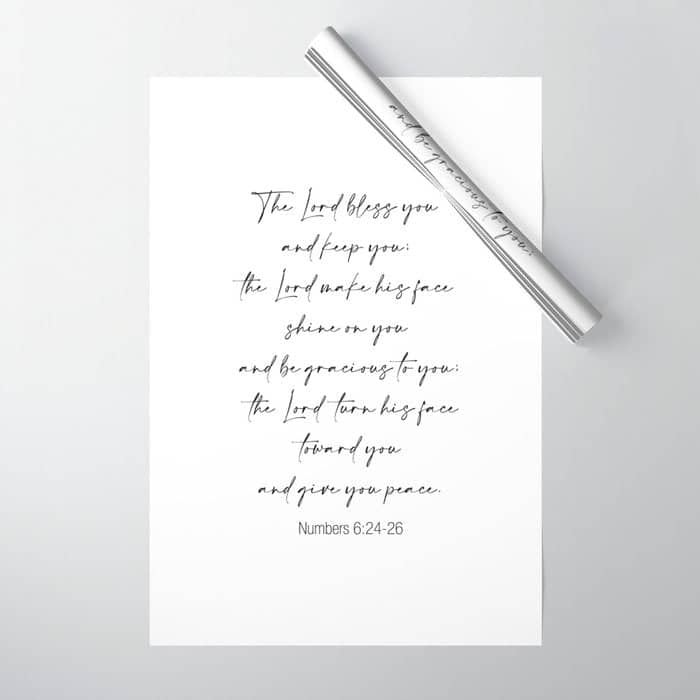 The Lord bless you
and keep you;
the Lord make his face
shine on you
and be gracious to you;
the Lord turn his face
toward you
and give you peace.
Numbers 6:24-26
and be gracious to you;